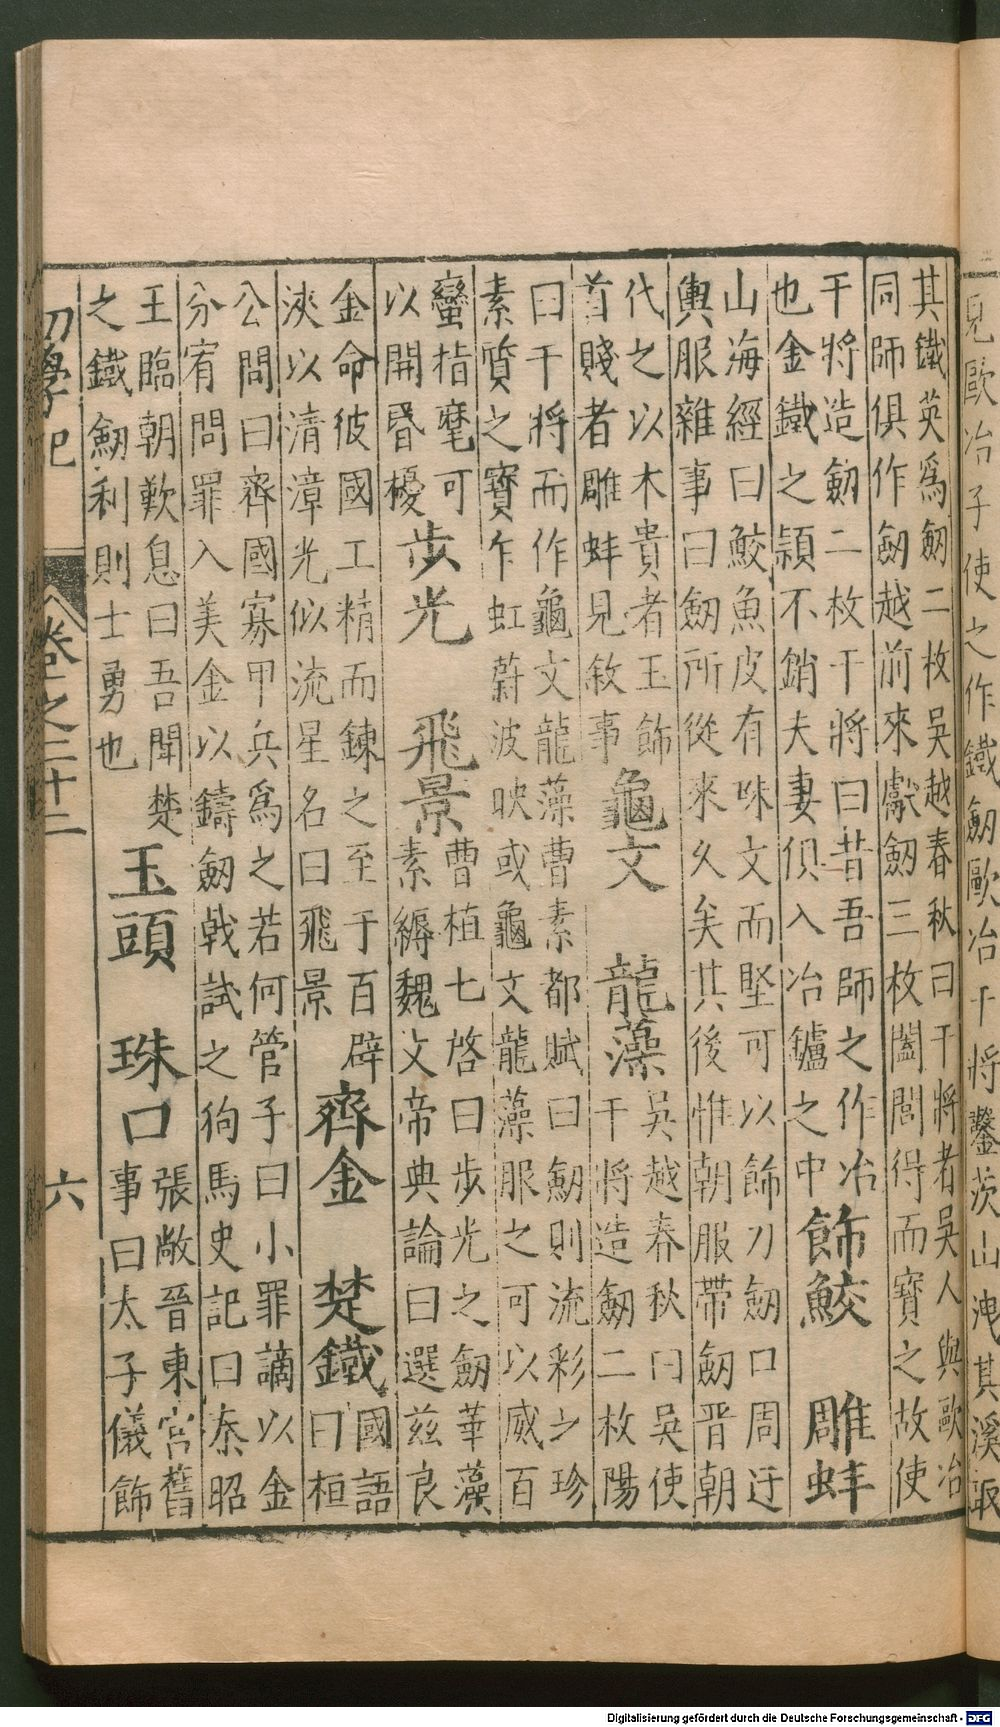 見歐冶子使之作鐵劔歐冶干將鑿茨山洩其溪取
其鐵英爲劔二枚吳越春秋曰干將者吳人與歐冶
同師俱作劔越前來獻劔三枚闔閭得而寶之故使
干將造劔二枚干將曰昔吾師之作冶
也金鐵之頴不銷夫妻俱入冶鑪之中
飾鮫 雕蚌
山海經曰鮫魚皮有味文而堅可以飾刀劔口周迁
輿服雜事曰劔所從來久矣其後惟朝服帶劔晋朝
代之以木貴者玉飾
首賤者雕蚌見敘事
龜文 龍藻
吳越春秋曰吳使
干將造劔二枚陽
曰干將而作龜文龍藻曹素都賦曰劔則流彩之珍
素質之寶乍虹蔚波映或龜文龍藻服之可以威百
蠻指麾可
以開昏擾
步光 飛景
曹植七啓曰步光之劔華藻
素縟魏文帝典論曰選兹良
金命彼國工精而鍊之至于百辟
浹以清漳光似流星名曰飛景
齊金 楚鐵
國語
曰桓
公問曰齊國寡甲兵爲之若何管子曰小罪謫以金
分宥問罪入美金以鑄劔戟試之狗馬史記曰秦昭
王臨朝歎息曰吾聞楚
之鐵劔利則士勇也
玉頭 珠口
張敞晉東宮舊
事曰太子儀飾
初學記 卷之二十二 六
Digitalisierung gefördert durch die Deutsche Forschungsgemeinschaft - DFG